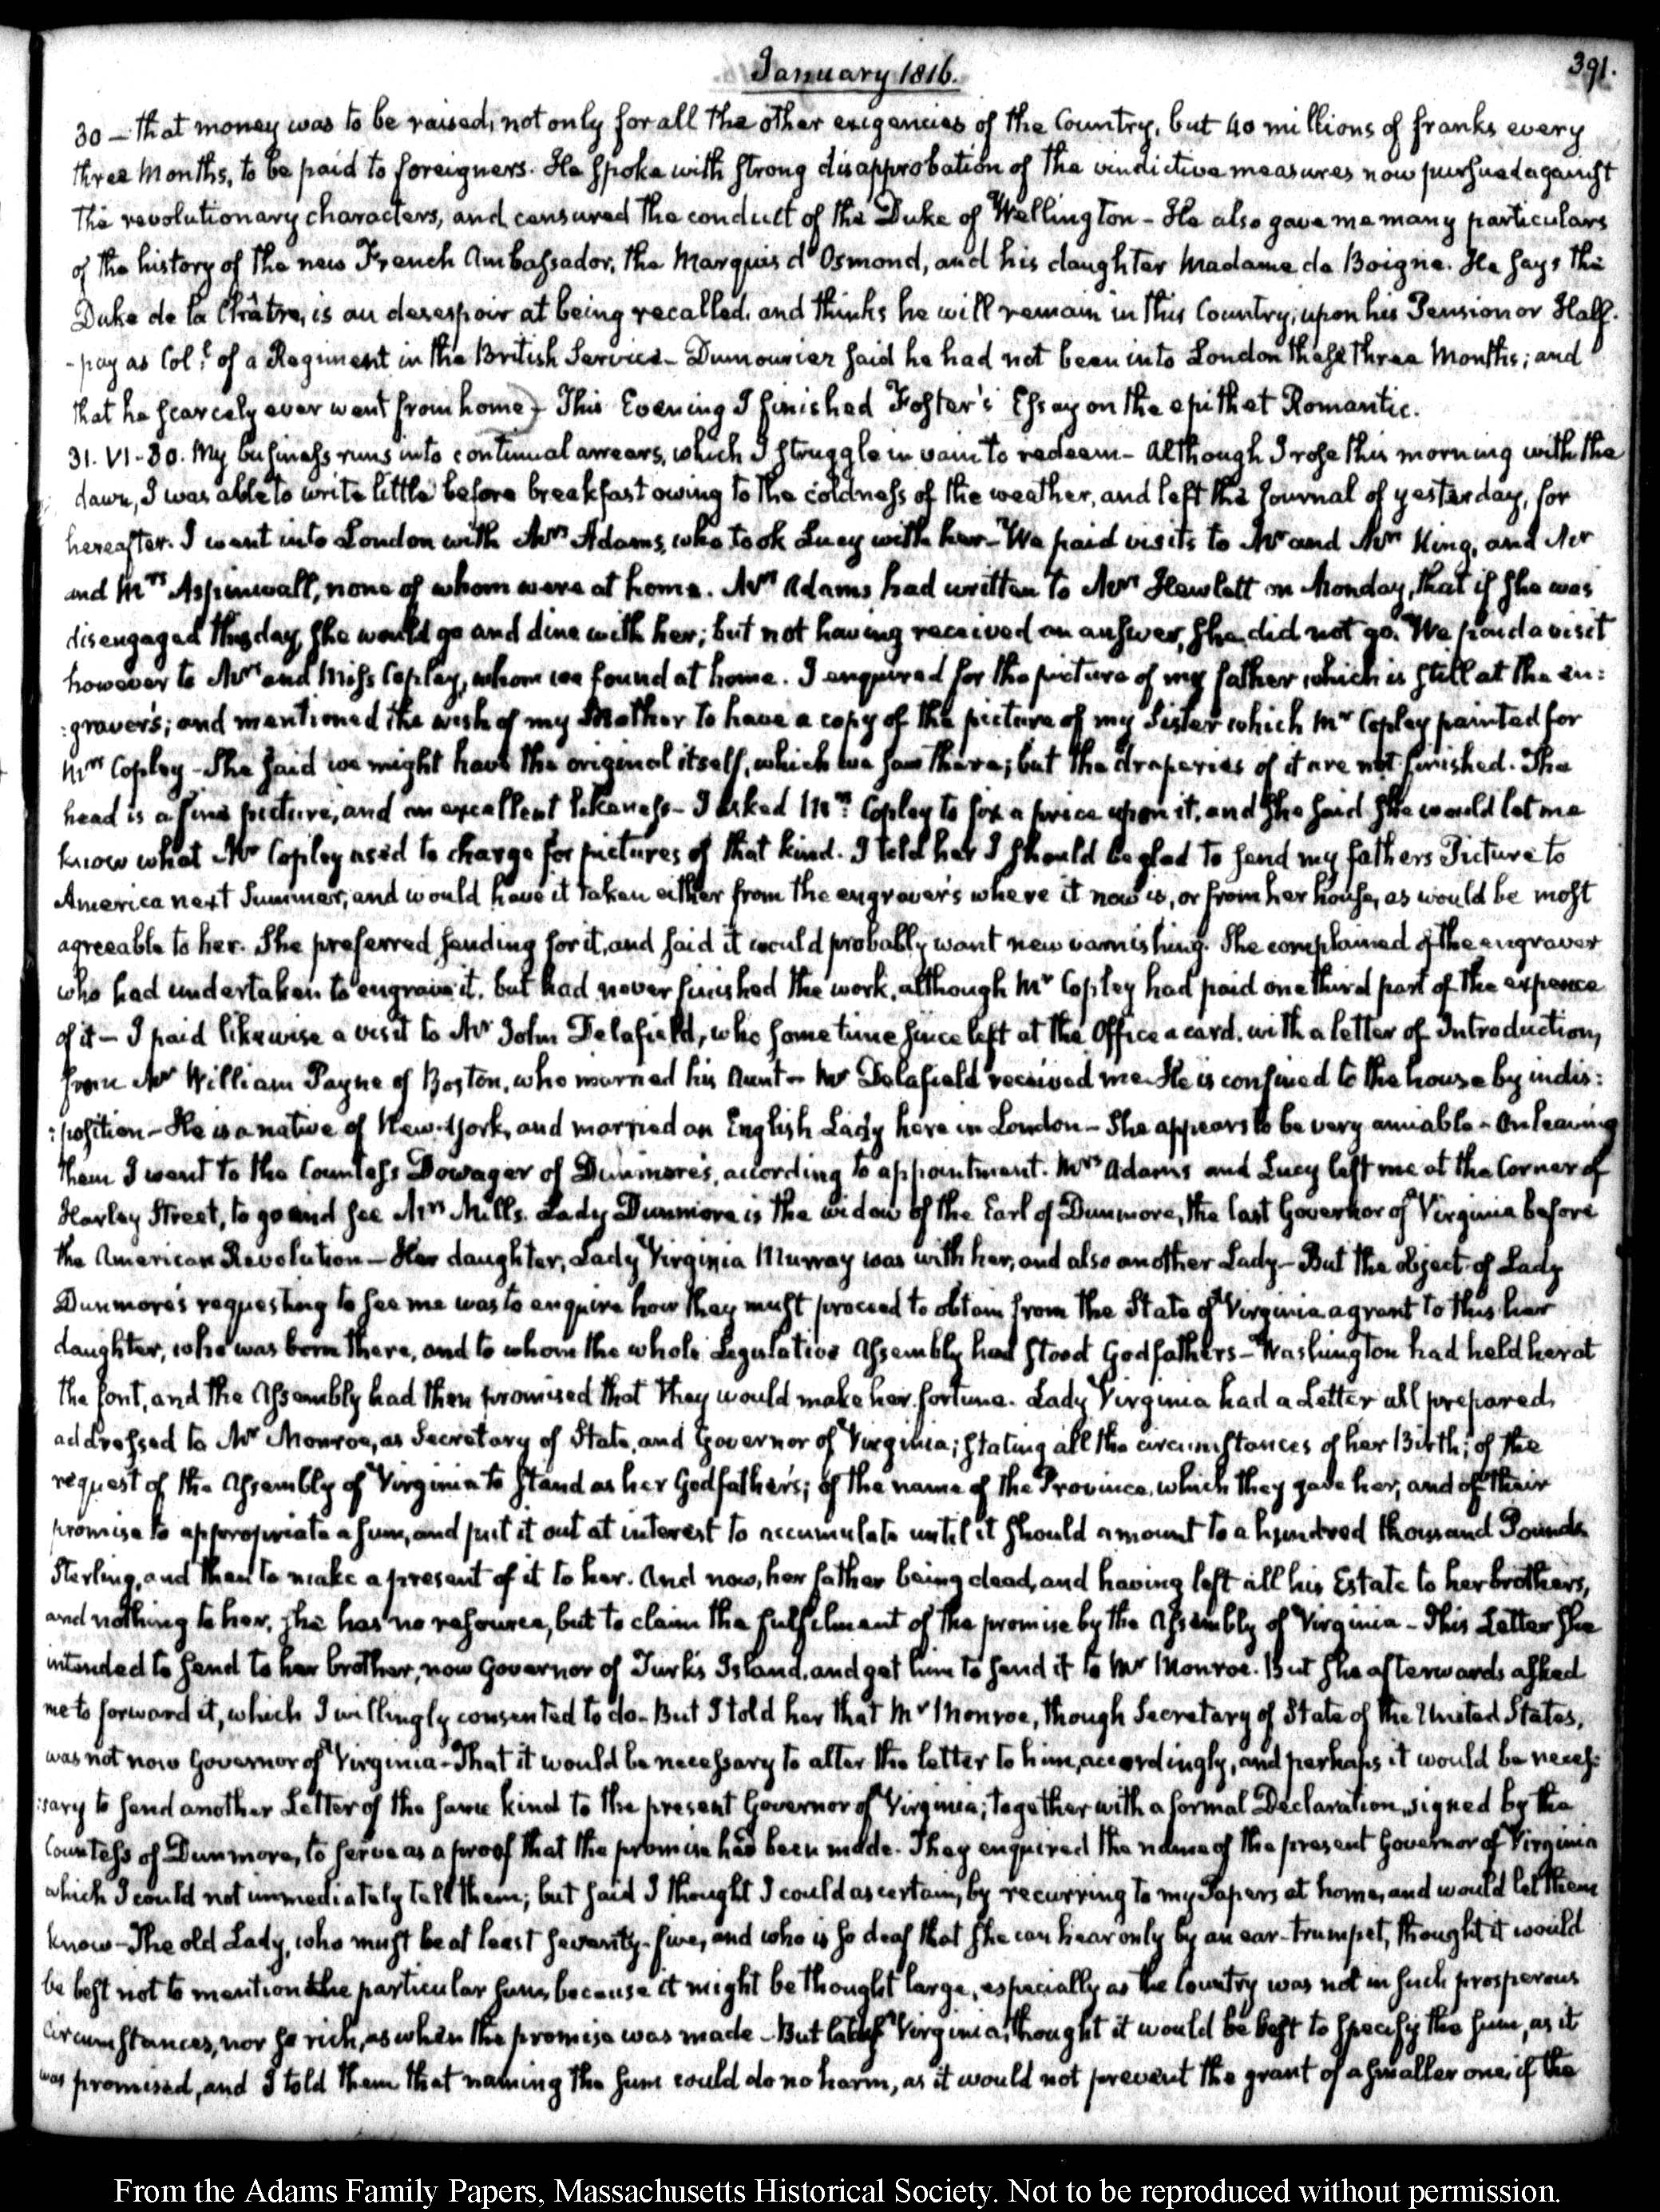 January 1816.
391.
30 — that money was to be raised, not only for all the other exigencies of the Country, but 40 millions of franks every
three Months, to be paid to foreigners. He spoke with strong disapprobation of the vindictive measures now pursued against
the revolutionary characters, and censured the conduct of the Duke of Wellington - He also gave me many particulars
of the history of the new French Ambassador, the Marquis d'Osmond, and his daughter Madame de Boigne. He says the
Duke de la Châtre, is au desespoir at being recalled, and thinks he will remain in this Country, upon his Pension or Half-
-pay as Col.l of a Regiment in the British Service - Dumourier said he had not been into London these three Months; and
that he scarcely ever went from home) - This Evening I finished Foster's Essay on the epithet Romantic.
31. VI-30. My business runs into continual arrears, which I struggle in vain to redeem - Although I rose this morning with the
dawn, I was able to write little before breakfast owing to the coldness of the weather, and left the Journal of yesterday, for
hereafter. I went into London with Mrs Adams, who took Lucy with her - We paid visits to Mr and Mrs King, and Mr
and Mrs Aspinwall, none of whom were at home. Mrs Adams had written to Mrs Hewlett on Monday, that if she was
disengaged this day, she would go and dine with her; but not having received an answer, she did not go. We paid a visit
however to Mrs and Miss Copley, whom we found at home. I enquired for the picture of my father which is still at the en:
:graver's; and mentioned the wish of my Mother to have a copy of the picture of my Sister which Mr Copley painted for
Mrs Copley - She said we might have the original itself, which we saw there; but the draperies of it are not finished. The
head is a fine picture, and an excellent likeness - I asked Mrs Copley to fix a price upon it, and she said she would let me
know what Mr Copley used to charge for pictures of that kind. I told her I should be glad to send my fathers Picture to
America next Summer, and would have it taken either from the engraver's where it now is, or from her house, as would be most
agreeable to her. She preferred sending for it, and said it would probably want new varnishing. She complained of the engraver
who had undertaken to engrave it, but had never finished the work, although Mr Copley had paid one third part of the expence
of it - I paid likewise a visit to Mr John Delafield, who some time since left at the Office a card, with a letter of Introduction,
from Mr William Payne of Boston, who married his Aunt - Mr Delafield received me. He is confined to the house by indis:
:position - He is a native of New-York, and married an English Lady here in London - She appears to be very amiable - On leaving
them I went to the Countess Dowager of Dunmore's, according to appointment. Mrs Adams and Lucy left me at the Corner of
Harley Street, to go and see Mrs Mills. Lady Dunmore is the widow of the Earl of Dunmore, the last Governor of Virginia before
the American Revolution - Her daughter, Lady Virginia Murray was with her, and also another Lady - But the object of Lady
Dunmore's requesting to see me was to enquire how they must proceed to obtain from the State of Virginia a grant to this her
daughter, who was born there, and to whom the whole Legislative Assembly had stood Godfathers - Washington had held her at
the font, and the Assembly had then promised that they would make her fortune. Lady Virginia had a Letter all prepared,
addressed to Mr Monroe, as Secretary of State, and Governor of Virginia; stating all the circumstances of her Birth; of the
request of the Assembly of Virginia to stand as her Godfathers; of the name of the Province, which they gave her; and of their
promise to appropriate a sum, and put it out at interest to accumulate until it should amount to a hundred thousand Pounds
Sterling, and then to make a present of it to her. And now, her father being dead, and having left all his Estate to her brothers,
and nothing to her, she has no resource, but to claim the fulfilment of the promise by the Assembly of Virginia - This Letter she
intended to send to her brother, now Governor of Turk's Island, and get him to send it to Mr Monroe. But she afterwards asked
me to forward it, which I willingly consented to do - But I told her that Mr Monroe, though Secretary of State of the United States,
was not now Governor of Virginia - That it would be necessary to alter the letter to him, accordingly, and perhaps it would be neces:
:sary to send another Letter of the same kind to the present Governor of Virginia; together with a formal Declaration, signed by the
Countess of Dunmore, to serve as a proof that the promise had been made. They enquired the name of the present Governor of Virginia
which I could not immediately tell them; but said I thought I could ascertain, by recurring to my Papers at home, and would let them
know - The old Lady, who must be at least seventy-five, and who is so deaf that she can hear only by an ear-trumpet, thought it would
be best not to mention the particular sum, because it might be thought large, especially as the Country was not in such prosperous
circumstances, nor so rich, as when the promise was made - But Lady Virginia, thought it would be best to specify the sum, as it
was promised, and I told them that naming the sum could do no harm, as it would not prevent the grant of a smaller one, if the
From the Adams Family Papers, Massachusetts Historical Society. Not to be reproduced without permission.